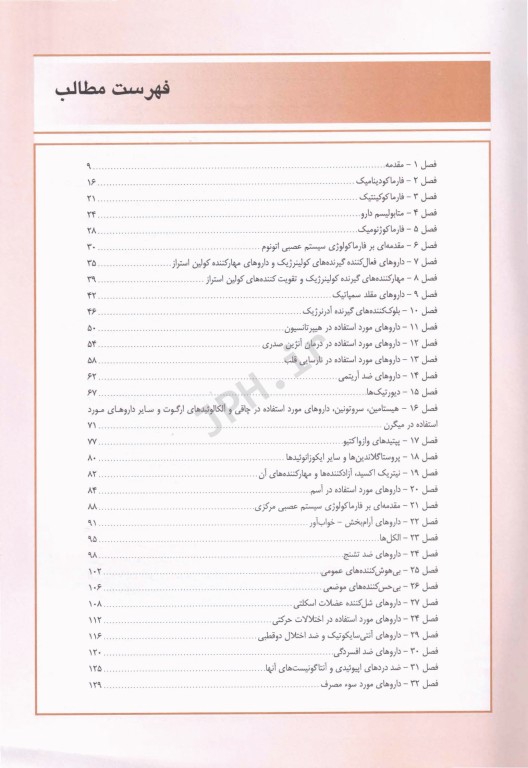 فهرست مطالب
فصل ۱ - مقدمه ... ۹
فصل ۲ - فارماکودینامیک ... ۱۶
فصل ۳ - فارماکوکینتیک ... ۲۱
فصل ۴ - متابولیسم دارو ... ۲۴
فصل ۵ - فارماکوژنومیک ... ۲۸
فصل ۶ - مقدمه‌ای بر فارماکولوژی سیستم عصبی اتونوم ... ۳۰
فصل ۷ - داروهای فعال‌کننده گیرنده‌های کولینرژیک و داروهای مهارکننده کولین استراز ... ۳۵
فصل ۸ - مهارکننده‌های گیرنده کولینرژیک و تقویت کننده‌های کولین استراز ... ۳۹
فصل ۹ - داروهای مقلد سمپاتیک ... ۴۲
فصل ۱۰ - بلوک‌کننده‌های گیرنده آدرنرژیک ... ۴۶
فصل ۱۱ - داروهای مورد استفاده در هیپرتانسیون ... ۵۰
فصل ۱۲ - داروهای مورد استفاده در درمان آنژین صدری ... ۵۴
فصل ۱۳ - داروهای مورد استفاده در نارسایی قلب ... ۵۸
فصل ۱۴ - داروهای ضد آریتمی ... ۶۲
فصل ۱۵ - دیورتیک‌ها ... ۶۷
فصل ۱۶ - هیستامین، سروتونین، داروهای مورد استفاده در چاقی و آلکالوئیدهای ارگوت و سایر داروهای مورد
استفاده در میگرن ... ۷۱
فصل ۱۷ - پپتیدهای وازواکتیو ... ۷۷
فصل ۱۸ - پروستاگلاندین‌ها و سایر ایکوزانوئیدها ... ۸۰
فصل ۱۹ - نیتریک اکسید، آزادکننده‌ها و مهارکننده‌های آن ... ۸۲
فصل ۲۰ - داروهای مورد استفاده در آسم ... ۸۴
فصل ۲۱ - مقدمه‌ای بر فارماکولوژی سیستم عصبی مرکزی ... ۸۸
فصل ۲۲ - داروهای آرام‌بخش - خواب‌آور ... ۹۱
فصل ۲۳ - الکل‌ها ... ۹۵
فصل ۲۴ - داروهای ضد تشنج ... ۹۸
فصل ۲۵ - بی‌هوش‌کننده‌های عمومی ... ۱۰۲
فصل ۲۶ - بی‌حس‌کننده‌های موضعی ... ۱۰۶
فصل ۲۷ - داروهای شل‌کننده عضلات اسکلتی ... ۱۰۸
فصل ۲۴ - داروهای مورد استفاده در اختلالات حرکتی ... ۱۱۲
فصل ۲۹ - داروهای آنتی‌سایکوتیک و ضد اختلال دوقطبی ... ۱۱۶
فصل ۳۰ - داروهای ضد افسردگی ... ۱۲۰
فصل ۳۱ - ضد دردهای اپیوئیدی و آنتاگونیست‌های آنها ... ۱۲۵
فصل ۳۲ - داروهای مورد سوء مصرف ... ۱۲۹
JPH.ir